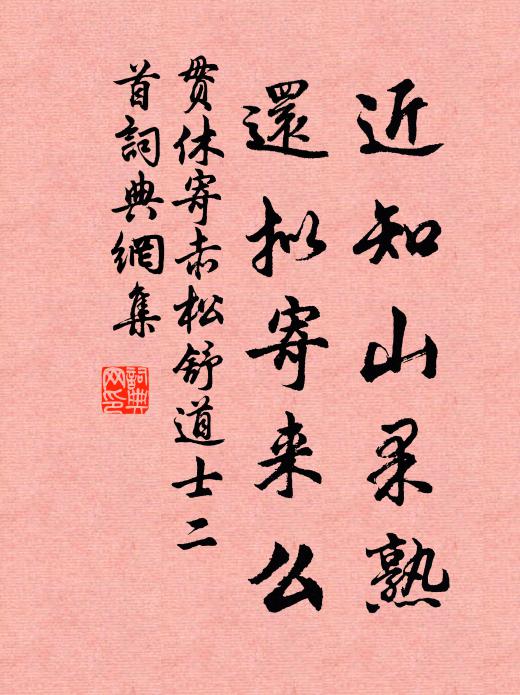 近知山果熟
還拟寄来么
貫休寄赤松舒道士二
首詞典網集
詞典
网印